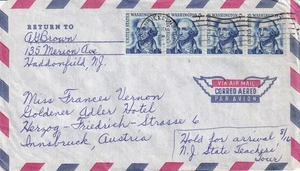 RETURN TO
A.G. Brown
135 Merion Ave
Haddonfield, N.J.
WASHINGTON WASHINGTON WASHINGTON WASHINGTON
VIA AIR MAIL
CORREO AEREO
PAR AVION
Miss Frances Vernon
Goldener Adler Hotel
Herzog-Friedrich-Strasse 6
Innsbruck, Austria
Hold for arrival
N.J. State Teachers'
Tour